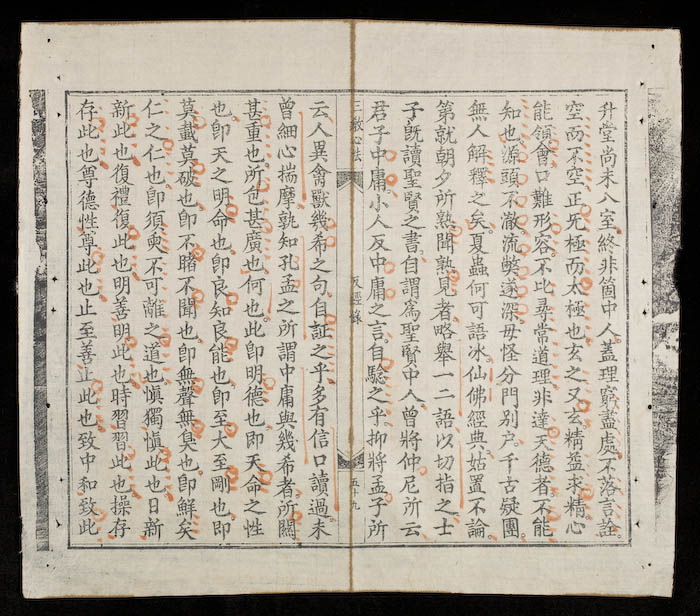 升堂尚未入室終非箇中人蓋理窮盡處不落言詮
空而不空正无極而太極也玄之又玄精益求精心
能領會口難形容不比尋常道理非達天德者不能
知也源頭不澈流獘遂深毋怪分門別户千古疑團
無人解釋之矣夏蟲何可語冰仙佛經典姑置不論
第就朝夕所熟聞熟見者略舉一二語以切指之士
子既讀聖賢之書自謂為聖賢中人曾將仲尼所云
君子中庸小人反中庸之言自驗之乎抑將孟子所
三教心法 反經錄 五十九
云人異禽獸幾希之句自証之乎多有信口讀過未
曾細心揣摩孰知孔孟之所謂中庸與幾希者所關
甚重也所包甚廣也何也此即明德也即天命之性
也即天之明命也即良知良能也即至大至剛也即
莫載莫破也即不睹不聞也即無聲無臭也即鮮矣
仁之仁也即須臾不可離之道也慎獨慎此也日新
新此也復禮復此也明善明此也時習習此也操存
存此也尊德性尊此也止至善止此也致中和致此